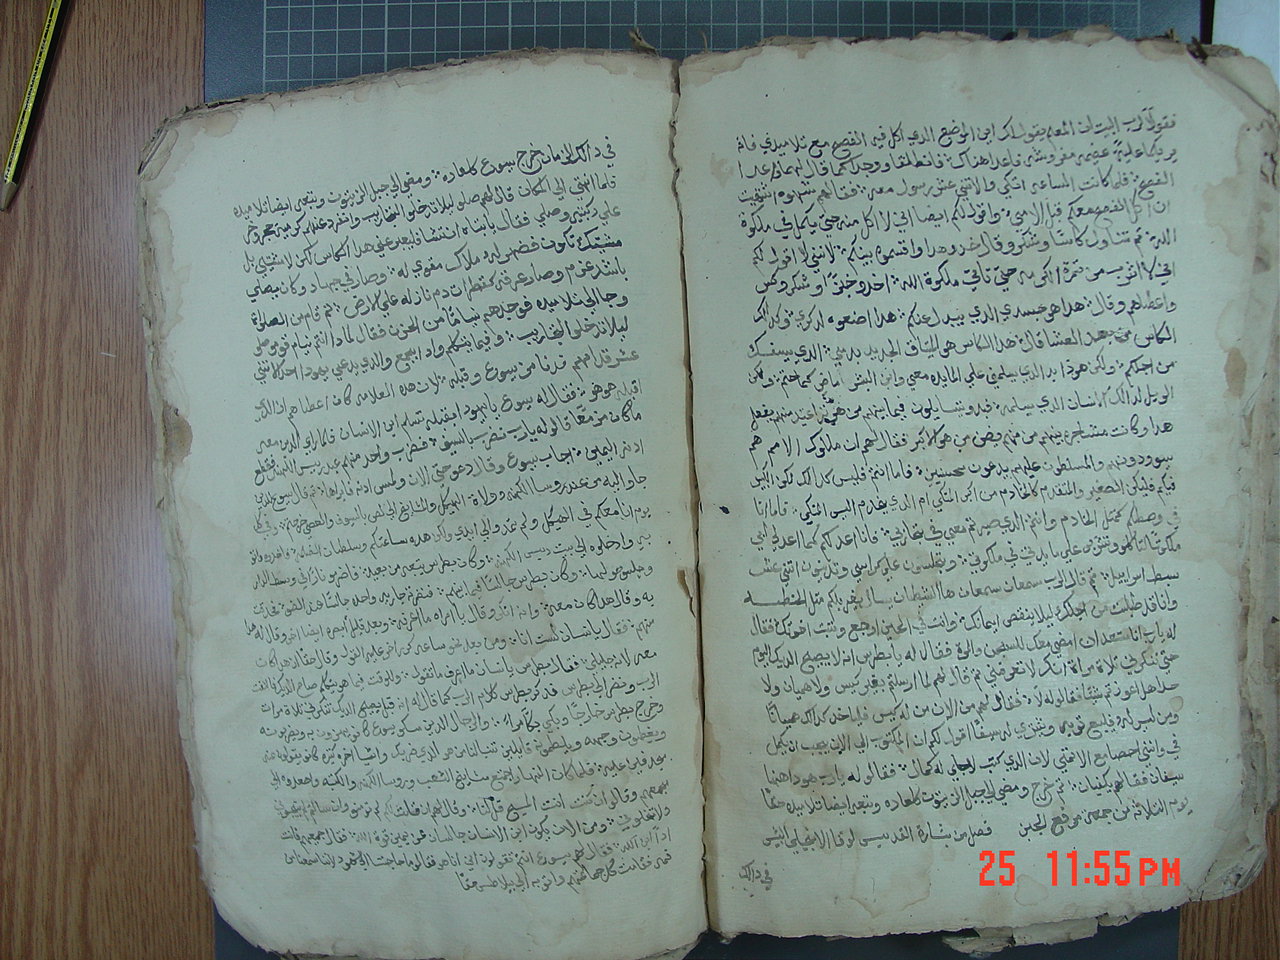 فقولا لرب البيت ان المعلم يقول لك اين الموضع الذي اكل فيه الفصح مع تلاميذي فانه
يريكما علية عظيمه مفروشه فاعدا هناك فانطلقا ووجدا كما قال لهما فاعدا
الفصح فلما كانت الساعه اتكى والاثني عشر رسول معه فقال لهم شهوه اشتهيت
ان اكل الفصح معكم قبل الامي واقول لكم ايضا اني لا اكل منه حتي يكمل في ملكوة
الله ثم تناول كاسًا وشكر وقال خذوا هذا واقتسموه بينكم لانني لا اقول لكم
اني لا اشرب من ثمرة الكرمه حتي تاتي ملكوة الله اخذ خبزًا وشكر وكسر
واعطاهم وقال هذا هو جسدي الذي يبدل عنكم هذا اصنعوه لذكري وكذلك
الكاس من بعد العشا قال هذا الكاس هو الميثاق الجديد بدمي الذي يسفك
من اجلكم ولكن هوذا يد الذي يسلمني علي المايده معي وابن البشر ماضي كما حتم ولكن
الويل لذلك الانسان الذي يسلمه فبدو يتسايلون فيما بينهم من هو منهم يفعل
هذا وكانت مشاجره بينهم من منهم من هو الاكبر فقال لهم ان ملوك الامم هم
يسودونهم والمسلطون عليهم يدعون محسنين فاما انتم فليس كذلك لكن الكبير
فيكم فليكن الصغير والمتقدم كالخادم من اكبر المتكي ام الذي يخدم اليس المتكي فاما انا
في وسطكم كمثل الخادم وانتم الذين صبرتم معي في تجاربي فانا اعد لكم كما اعد لي ابي
ملكوتًا لتاكلوا وتشربوا علي مايدتي في ملكوتي وتجلسون علي كراسي وتدينون اثني عشر
سبط اسراييل ثم قال الرب سمعان سمعان ها الشيطان يسال يغربلكم مثل الحنطه
وانا قد طلبت من اجلك ليلا ينقص ايمانك وانت في الحين ارجع وثبت اخوتك فقال
له يارب انا مستعد ان امضي معك للسجن والموت فقال له يا بطرس انه لا يصيح الديك اليوم
حتي تنكرني ثلاثة مرات انك لا تعرفني ثم قال لهم لما ارسلتكم بغير كيس ولا هميان ولا
حذا هل اعوزتم شيًا فقالو له لا فقال لهم من الان من له كيس فلياخذ كذلك هميانًا
ومن ليس له فليبع ثوبه ويشتري له سيفًا اقول لكم ان المكتوب الي الان يجب ان يكمل
في وانني احصا مع الاثمه لان الذي كتب لاجلي له كمال فقالو له يارب هوذا هاهنا
سيفان فقال لهم يكفيان ثم خرج ومضي الي جبل الزيتون كالعاده وتبعه ايضا تلاميذه حقًا
يوم الثلاثه من جمعه مرفع الجبن فصل من بشارة القديس لوقا الانجيلي البشير
في ذالك
في ذالك الزمان خرج يسوع كالعاده ومضي الي جبل الزيتون وتبعه ايضا تلاميذه
فلما انتهي الي المكان قال لهم صلو ليلا تدخلو التجاريب وانفرد عنهم كرمية حجر وخر
علي ركبتيه وصلي فقال يا ابتاه ان تشا فليعبر عني هذا الكاس لكن لا مشيتي بل
مشيتك تكون فظهر له ملاك مقوي له وصار في جهاد وكان يصلي
باشد عزم وصار عرقه كقطرات دم نازله علي الارض ثم قام من الصلوة
وجا الي تلاميذه فوجدهم نيامًا من الحزن فقال لما ذا انتم نيام قوموا صلو
ليلا تدخلو التجاريب وفيما يتكلم واذا بجمع والذي يدعي يهوذا احد الاثني
عشر قدامهم فدنا من يسوع وقبله لان هذه العلامه كان اعطاهم ان الذي
اقبله هو هو فقال له يسوع يا يهوذا بقبله تسلم ابن الانسان فلما راي الذين معه
ما كان مزمعًا قالو له يارب نضرب بالسيف فضرب واحد منهم عبد رييس الكهنه فقطع
اذنه اليمين اجاب يسوع وقال دعو حتي الان ولمس اذنه فابراها ثم قال يسوع للذين
جاو اليه من عند روسا الكهنه وولاة الهيكل والمشايخ الي لص بالسيوف والعصي خرجتم وفي كل
يوم انا معكم في الهيكل ولم تمدو الي ايدي ولكن هذه ساعتكم وسلطان الظلمه واخذوه واتو
به وادخلوه الي بيت رييس الكهنه وكان بطرس يتبعه من بعيد فاضرمو نارًا في وسط الدار
وجلسو حولها وكان بطرس جالسًا فيما بينهم فنظرته جاريه واحده جالسًا عند الضو فحدقت
به وقال هذا كان معه وانه انكر وقال يا امراه ما اعرفه وبعد قليل ابصره ايضا اخر وقال له هذا
منهم فقال يا انسان لست انا ومن بعد نحو ساعه كرر اخر عليه القول وقال حقًا ان هذا كان
معه لانه جليلي فقال بطرس يا انسان ما اعرف ما تقول وللوقت فيما هو يتكلم صاح الديك فالتفت
الرب ونظر الي بطرس فذكر بطرس كلام الرب كما قال له انه قبل يصيح الديك تنكرني ثلاثة مرات
وخرج بطرس خارجًا وبكي بكًا مرًا والرجال الذين مسكو يسوع كانو يهزون به ويضربونه
ويغطون وجهه ويلطمونه قايلين تنبا لنا من هو الذي ضربك واشيا اخر كثيره كانو يقولوا عنه
مجدفين عليه فلما كان النهار اجتمع مشايخ الشعب وروسا الكهنه والكتبه واصعدوه الي
مجمعهم وقالو ان كنت انت المسيح قل لنا وقال لهم ان قلت لكم لم تومنو وان سالتكم لم تجيبوني
ولا تخلوني ومن الان يكون ابن الانسان جالسًا عن يمين قوة الله فقال جميعهم فانت
اذًا ابن الله فقال لهم يسوع انتم تقولون اني انا هو فقالو ما حاجتنا الي شهود لاننا سمعنا من
فمه فقامت كل جماعتهم واتو به الي بيلاطس حقًا
25 11:55PM